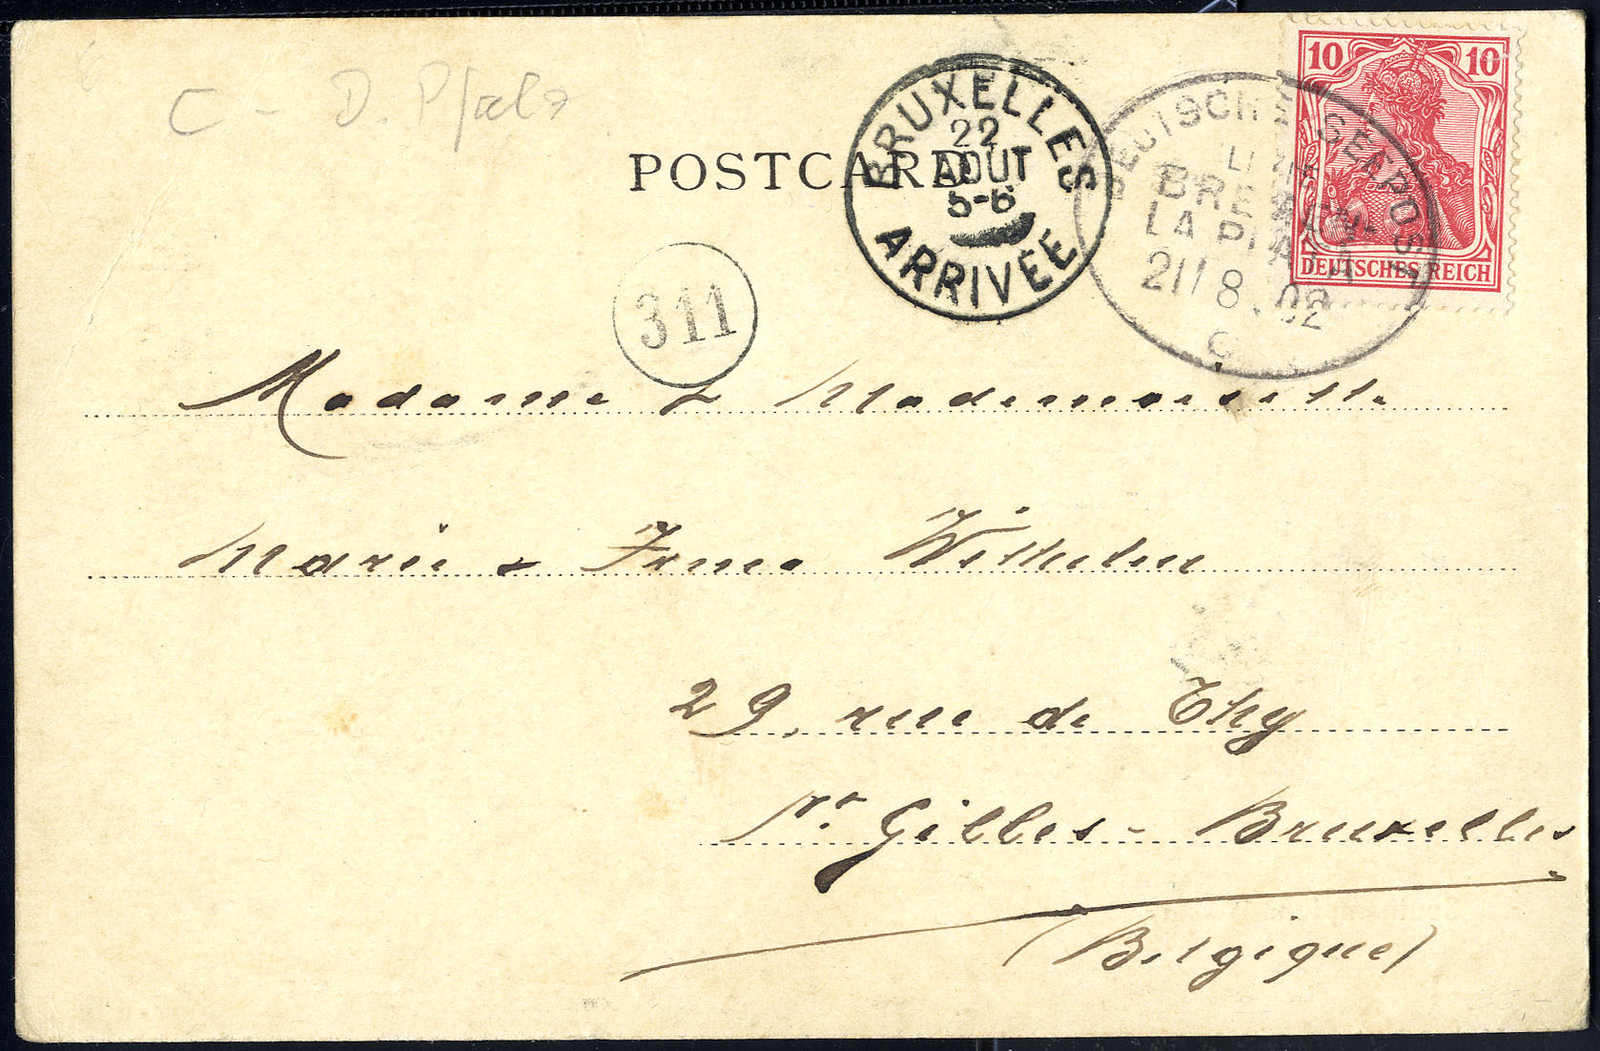 C - D. Pfalz
POSTCARD
BRUXELLES
22
AOUT
5-6
ARRIVÉE
DEUTSCHE SEEPOST
LINIE
BREMEN
LA PLATA
21/8.02
10 10
DEUTSCHES REICH
311
Madame & Mademoiselle
Marie & Irma Wilhelm
29, rue de Thy
St. Gilles - Bruxelles
(Belgique)